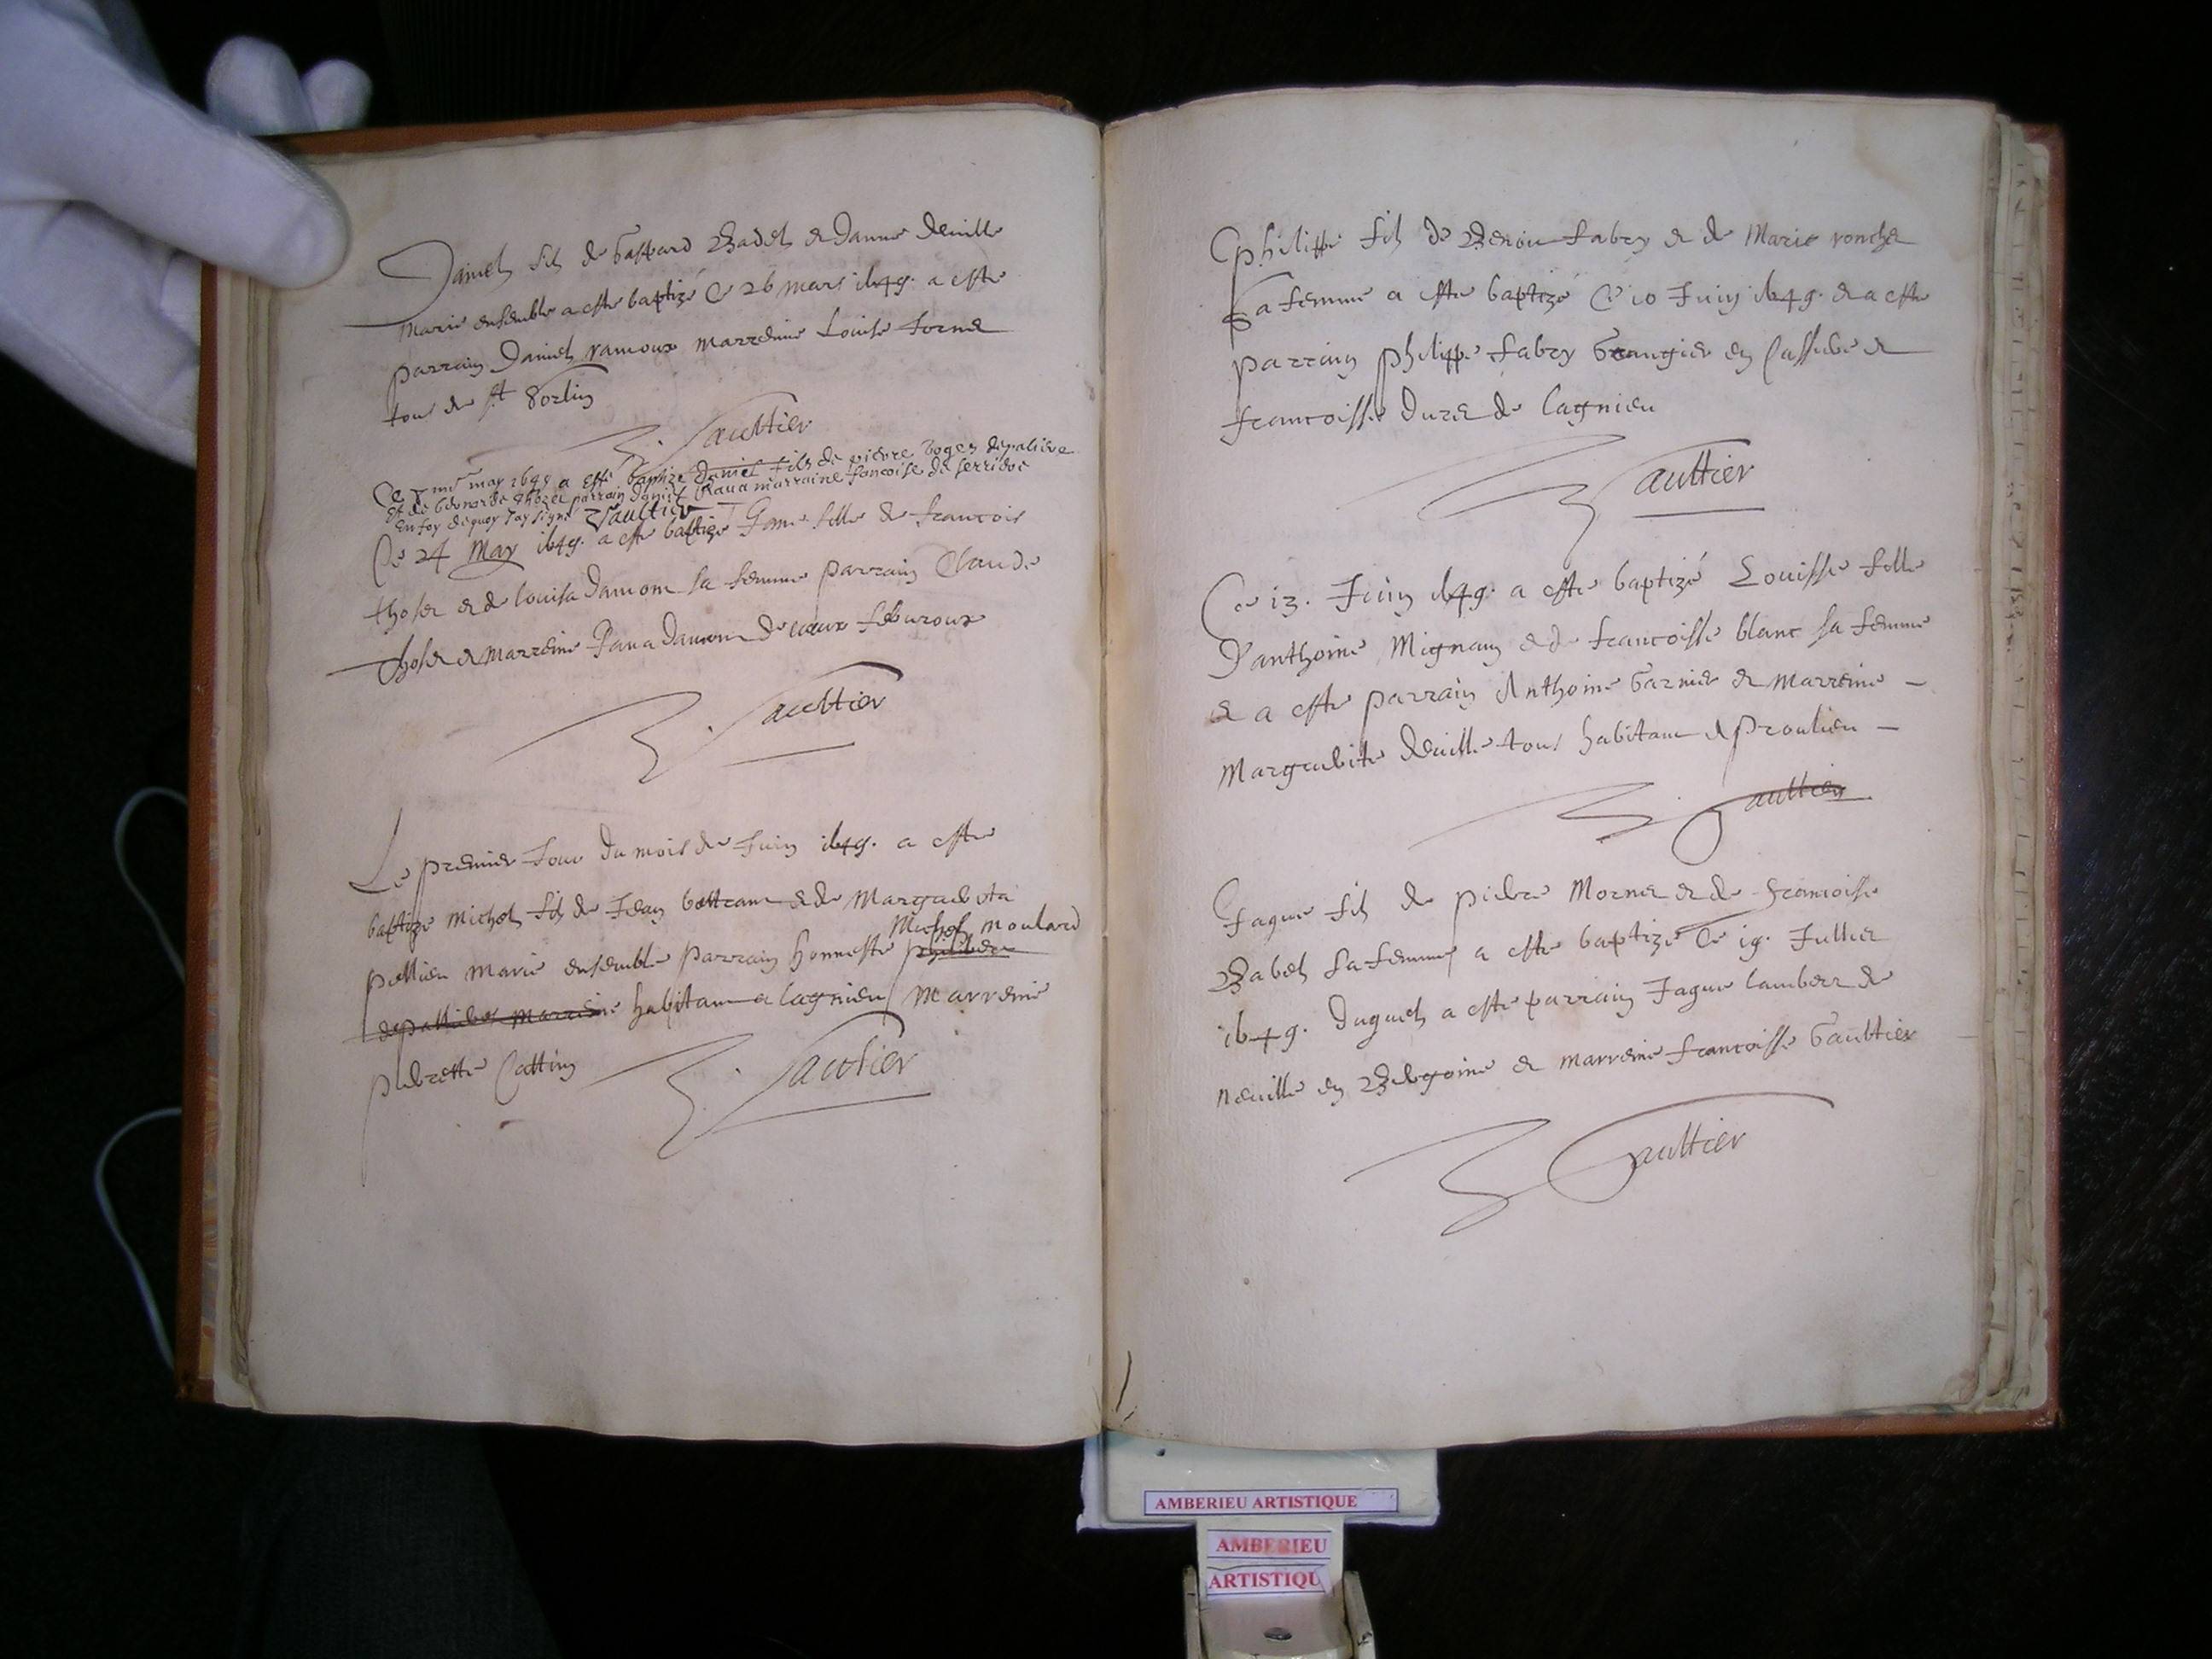 Daniel fils de Gaspard Badel et danne deville
Marie ensemble a este baptizé Ce 26 mars 1649. a este
parrain Daniel ramoux marreine Louise Tornet
tous de st Sorlin
Gaultier
Ce may 1649 a esté baptizé Daniel fils de pierre Boges
Et de bernarde thozet parrain Daniel Rava marraine francoise de ferriere
En foy dequoy Jay signé Gaultier
Ce 24 May 1649. a este baptizé Jane fille de francois
thoset et de louisa Damon sa femme parrain Claude
thoset et marreine Jana Damon
Gaultier
Le premier Jour du mois de Juin 1649. a este
baptizé Michel fils de Jean bottrant et de Margarita
Michel moulard
pollieu Marie ensemble parrain honneste philiber
habitant a lagnieu Marreine
pierrette Cattin
Gaultier
philippe fils de Benoit fabry et de Marie ronchet
sa femme a este baptizé Ce 10 Juin 1649. et a este
parrain philippe fabry Grangier en et
francoisse Duret de lagnieu
Gaultier
Ce 13. Juin 1649. a este baptizé Louisse fille
D'anthoine Mignan et de francoisse blanc sa femme
et a este parrain Anthoine Garnier et Marreine -
Marguerite deville tous habitant a Proulieu -
Gaultier
Jaque fils de pierre Mornet et de francoisse
Babel sa femme a este baptizé Ce 19. Julliet
1649. duquel a este parrain Jaque lambert de
neuille en et marreine francoisse Gaultier
Gaultier
AMBERIEU ARTISTIQUE
AMBERIEU
ARTISTIQU